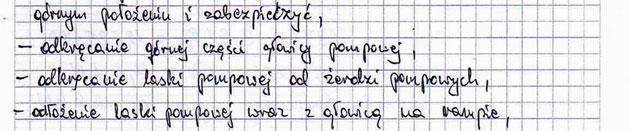 górnym położeniu i zabezpieczyć,
- odkręcanie górnej części głowicy pompowej,
- odkręcanie laski pompowej od żerdzi pompowych,
- odłożenie laski pompowej wraz z głowicą na rampie,